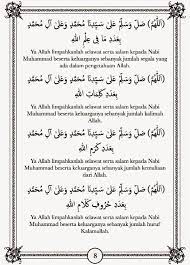 (اَللّٰهُمَّ) صَلِّ وَسَلِّمْ عَلَى سَيِّدِنَا مُحَمَّدٍ وَعَلَى آلِ مُحَمَّدٍ
بِعَدَدِ مَا فِى عِلْمِ اللهِ
Ya Allah limpahkanlah selawat serta salam kepada Nabi
Muhammad beserta keluarganya sebanyak jumlah segala yang
ada dalam pengetahuan Allah.
(اَللّٰهُمَّ) صَلِّ وَسَلِّمْ عَلَى سَيِّدِنَا مُحَمَّدٍ وَعَلَى آلِ مُحَمَّدٍ
بِعَدَدِ كَلِمَاتِ اللهِ
Ya Allah limpahkanlah selawat serta salam kepada Nabi
Muhammad beserta keluarganya sebanyak jumlah kalimah
Allah.
(اَللّٰهُمَّ) صَلِّ وَسَلِّمْ عَلَى سَيِّدِنَا مُحَمَّدٍ وَعَلَى آلِ مُحَمَّدٍ
بِعَدَدِ كَرَمِ اللهِ
Ya Allah limpahkanlah selawat serta salam kepada Nabi
Muhammad beserta keluarganya sebanyak jumlah kemuliaan
dari Allah.
(اَللّٰهُمَّ) صَلِّ وَسَلِّمْ عَلَى سَيِّدِنَا مُحَمَّدٍ وَعَلَى آلِ مُحَمَّدٍ
بِعَدَدِ حُرُوفِ كَلَامِ اللهِ
Ya Allah limpahkanlah selawat serta salam kepada Nabi
Muhammad beserta keluarganya sebanyak jumlah huruf
Kalamallah.
8